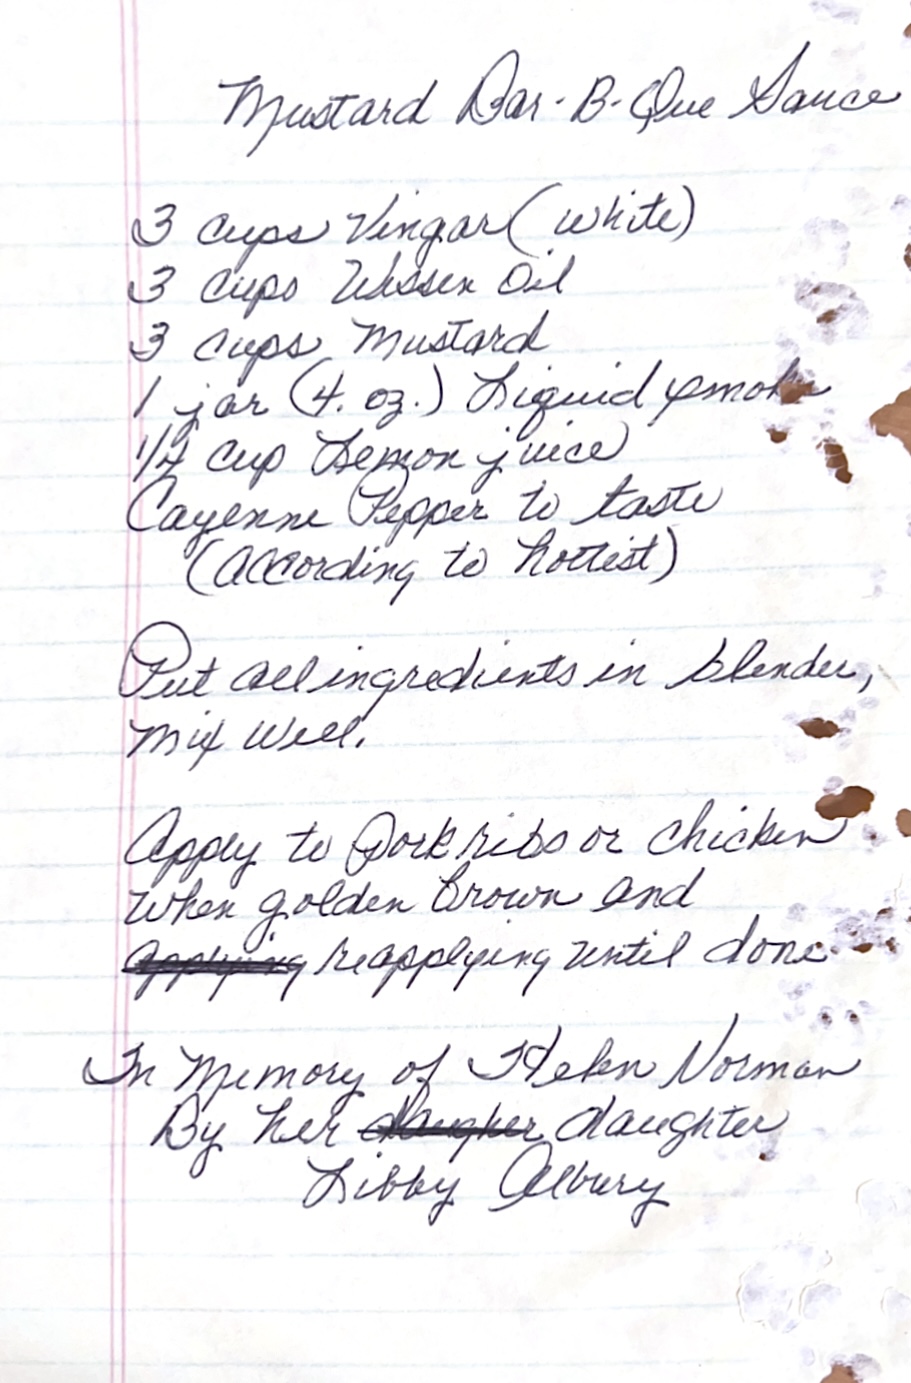 Mustard Bar-B-Que Sauce
3 cups Vingar (white)
3 cups Wessen Oil
3 cups Mustard
1 jar (4. oz.) Liquid smoke
1/4 cup Lemon juice
Cayenne Pepper to taste
(According to hottest)
Put all ingredients in blender,
mix well.
Apply to Pork ribs or chicken
when golden brown and
applying reapplying until done
In Memory of Helen Norman
By her daugher daughter
Libby Albury